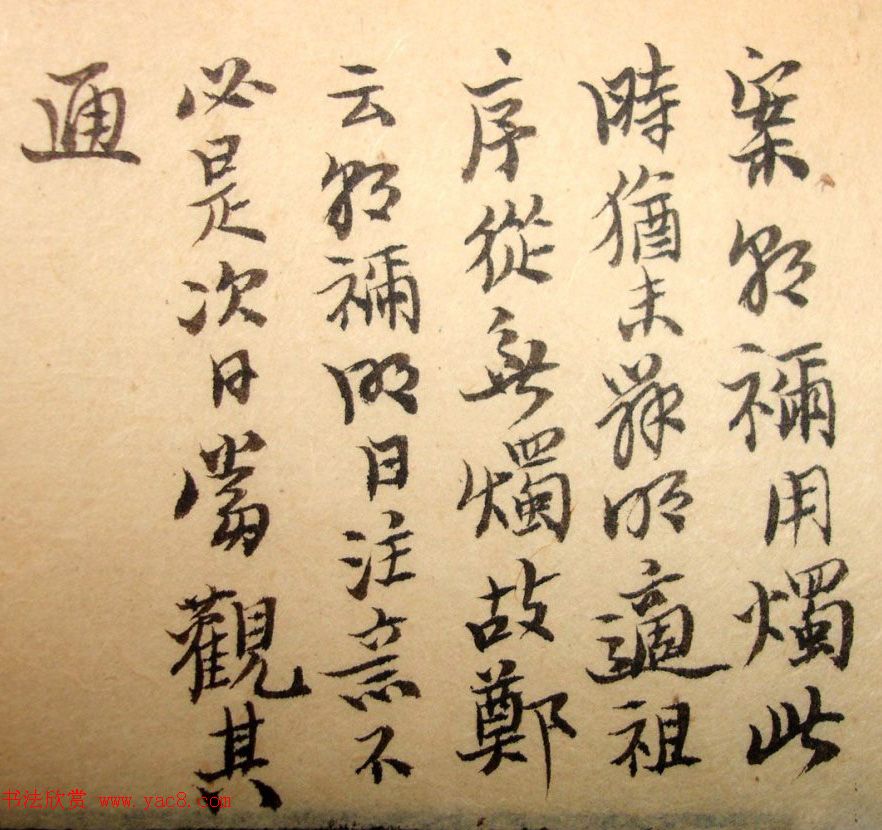 案朝禰用燭此
時猶未明適祖
序從無燭故鄭
云朝禰明日注意不
必是次日當觀其
通
书法欣赏 www.yac8.com